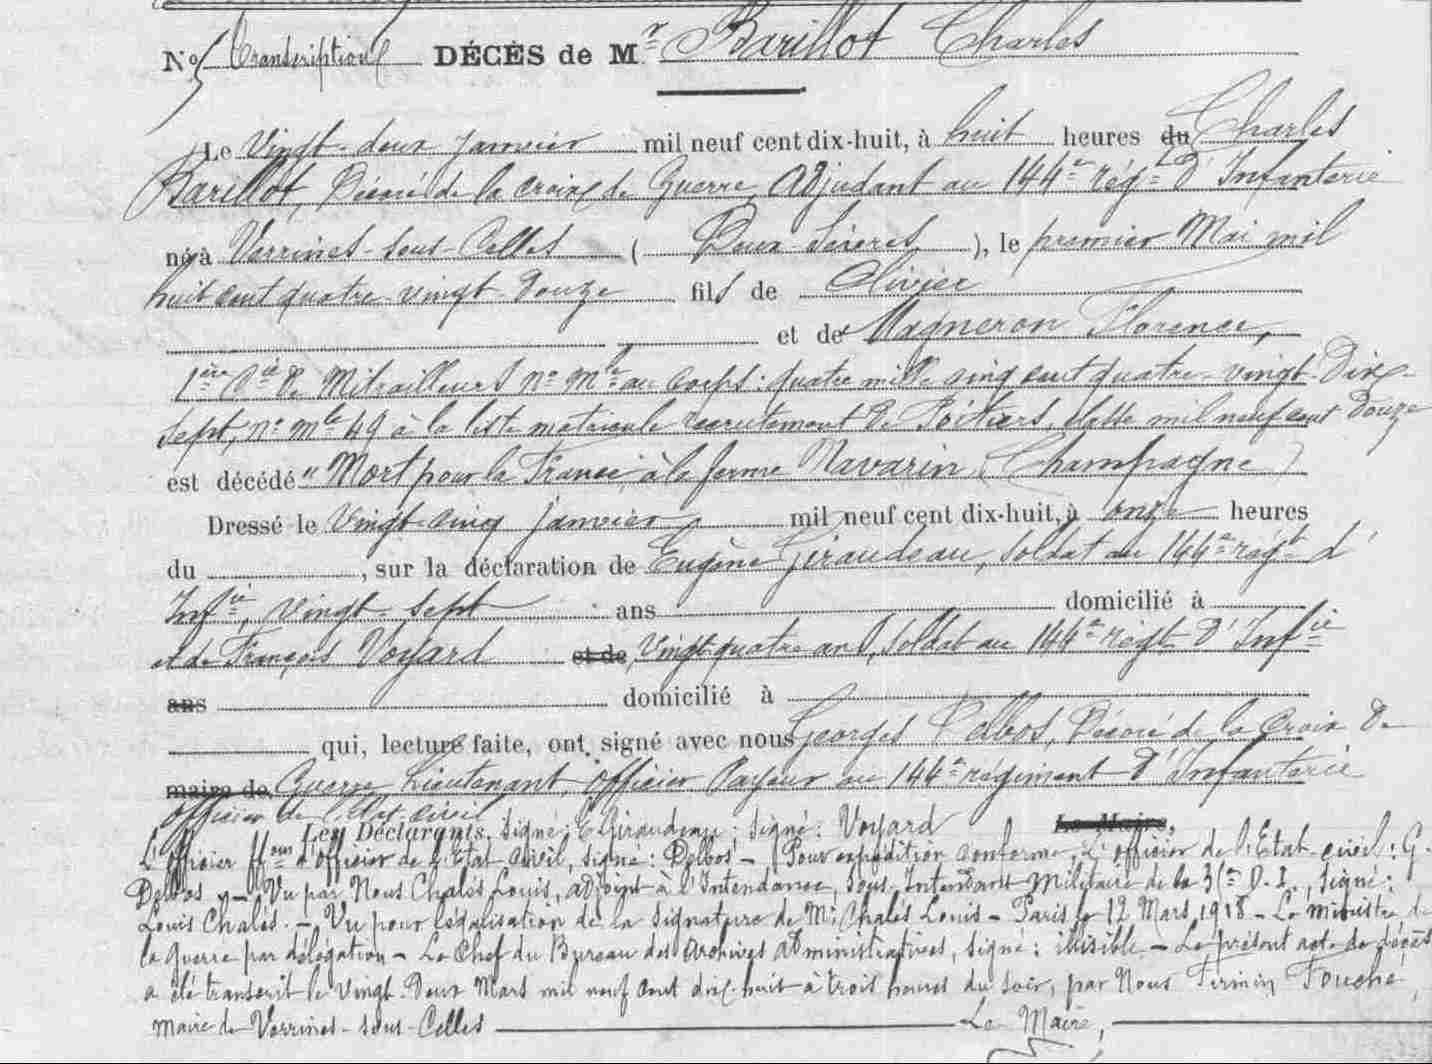 N° (Transcription) DÉCÈS de Mr Barillot Charles
Le Vingt-deux janvier mil neuf cent dix-huit, à huit heures du Charles
Barillot, Décoré de la croix de Guerre, Adjudant au 144e régt d'Infanterie
né à Verrines-sous-Celles (Deux-Sèvres), le premier Mai mil
huit cent quatre-vingt-douze fils de Olivier
et de Magneron Florence,
1ère Cie de Mitrailleurs n° Mle au corps : quatre mille cinq cent quatre-vingt-dix-
sept, n° mle 49 à la liste matricule recrutement de Poitiers, classe mil neuf cent douze
est décédé "Mort pour la France" à la ferme Navarin (Champagne)
Dressé le Vingt-cinq janvier mil neuf cent dix-huit, à onze heures
du , sur la déclaration de Eugène Giraudeau, soldat au 144e régt d'
Infie, vingt-sept ans domicilié à
et de François Voyard et de Vingt-quatre ans, soldat au 144e régt d'Infie
ans domicilié à
qui, lecture faite, ont signé avec nous Georges Delbos, Décoré de la Croix de
maire de Guerre Lieutenant, Officier Payeur au 144e régiment d'Infanterie
officier de l'Etat-civil
Les Déclarants, Signé : E Giraudeau : Signé : Voyard Le Maire,
L'Officier ffons d'officier de l'Etat civil, signé : Delbos – (Pour expédition conforme, L'officier de l'Etat-civil : G.
Delbos – Vu par Nous Chalès Louis, adjoint à l'Intendance, Sous-Intendant Militaire de la 35e D.I., signé :
Louis Chalès. – Vu pour légalisation de la Signature de Mr Chalès Louis – Paris le 12 Mars 1918 – Le ministre de
la guerre par délégation – Le Chef du Bureau des Archives administratives, signé : illisible – Le présent acte de décès
a été transcrit le Vingt-Deux Mars mil neuf cent dix-huit à trois heures du soir, par Nous Firmin Fouché,
Maire de Verrines-sous-Celles — Le Maire,